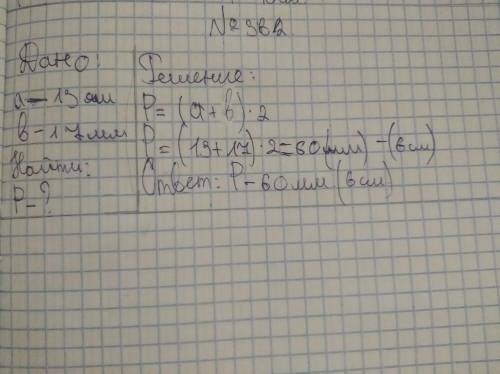 №362
Дано:
a - 13 мм
b - 17 мм
Найти:
P - ?
Решение:
P = (a + b) · 2
P = (13 + 17) · 2 = 60 (мм) - (6 см)
Ответ: P - 60 мм (6 см)